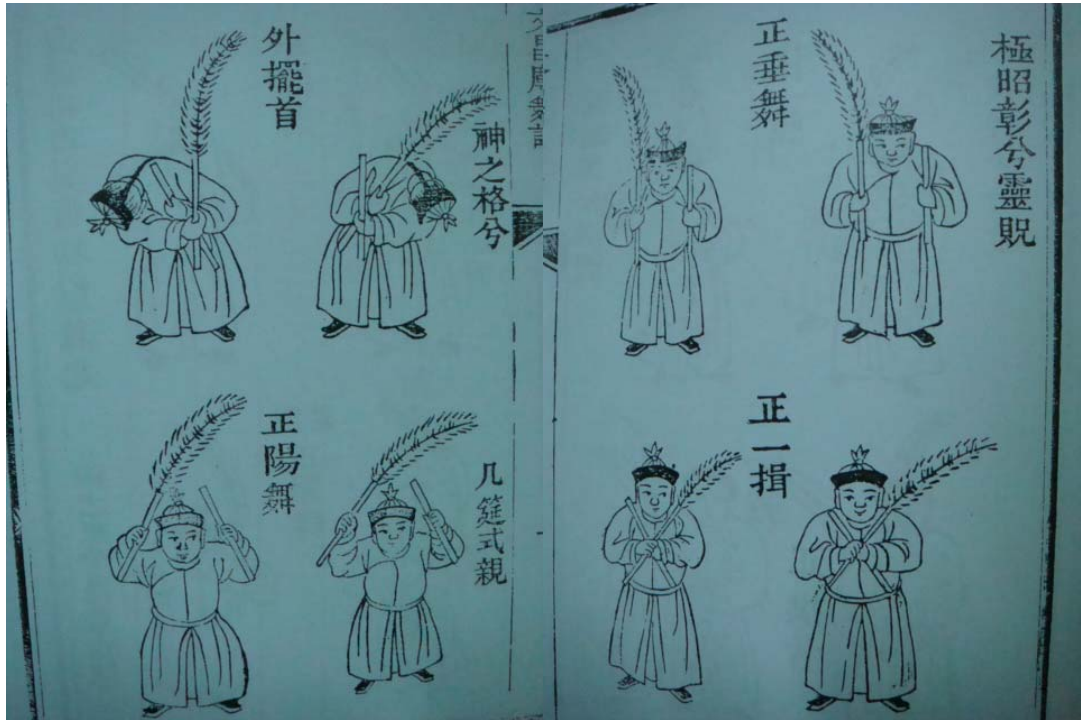 極昭彰兮靈貺
正垂舞
正一揖
神之格兮
外擺首
几筵式親
正陽舞